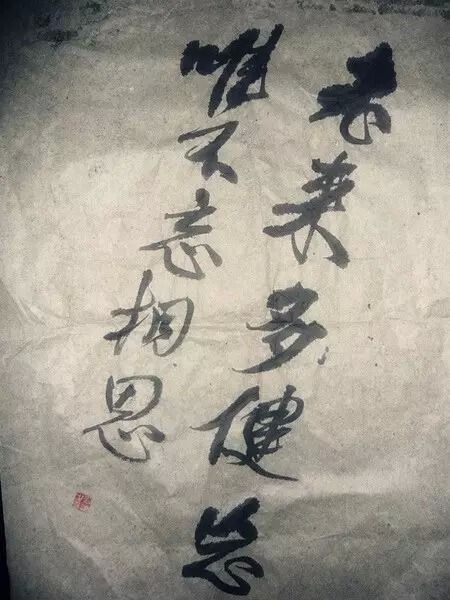 老来多健忘
唯不忘相思